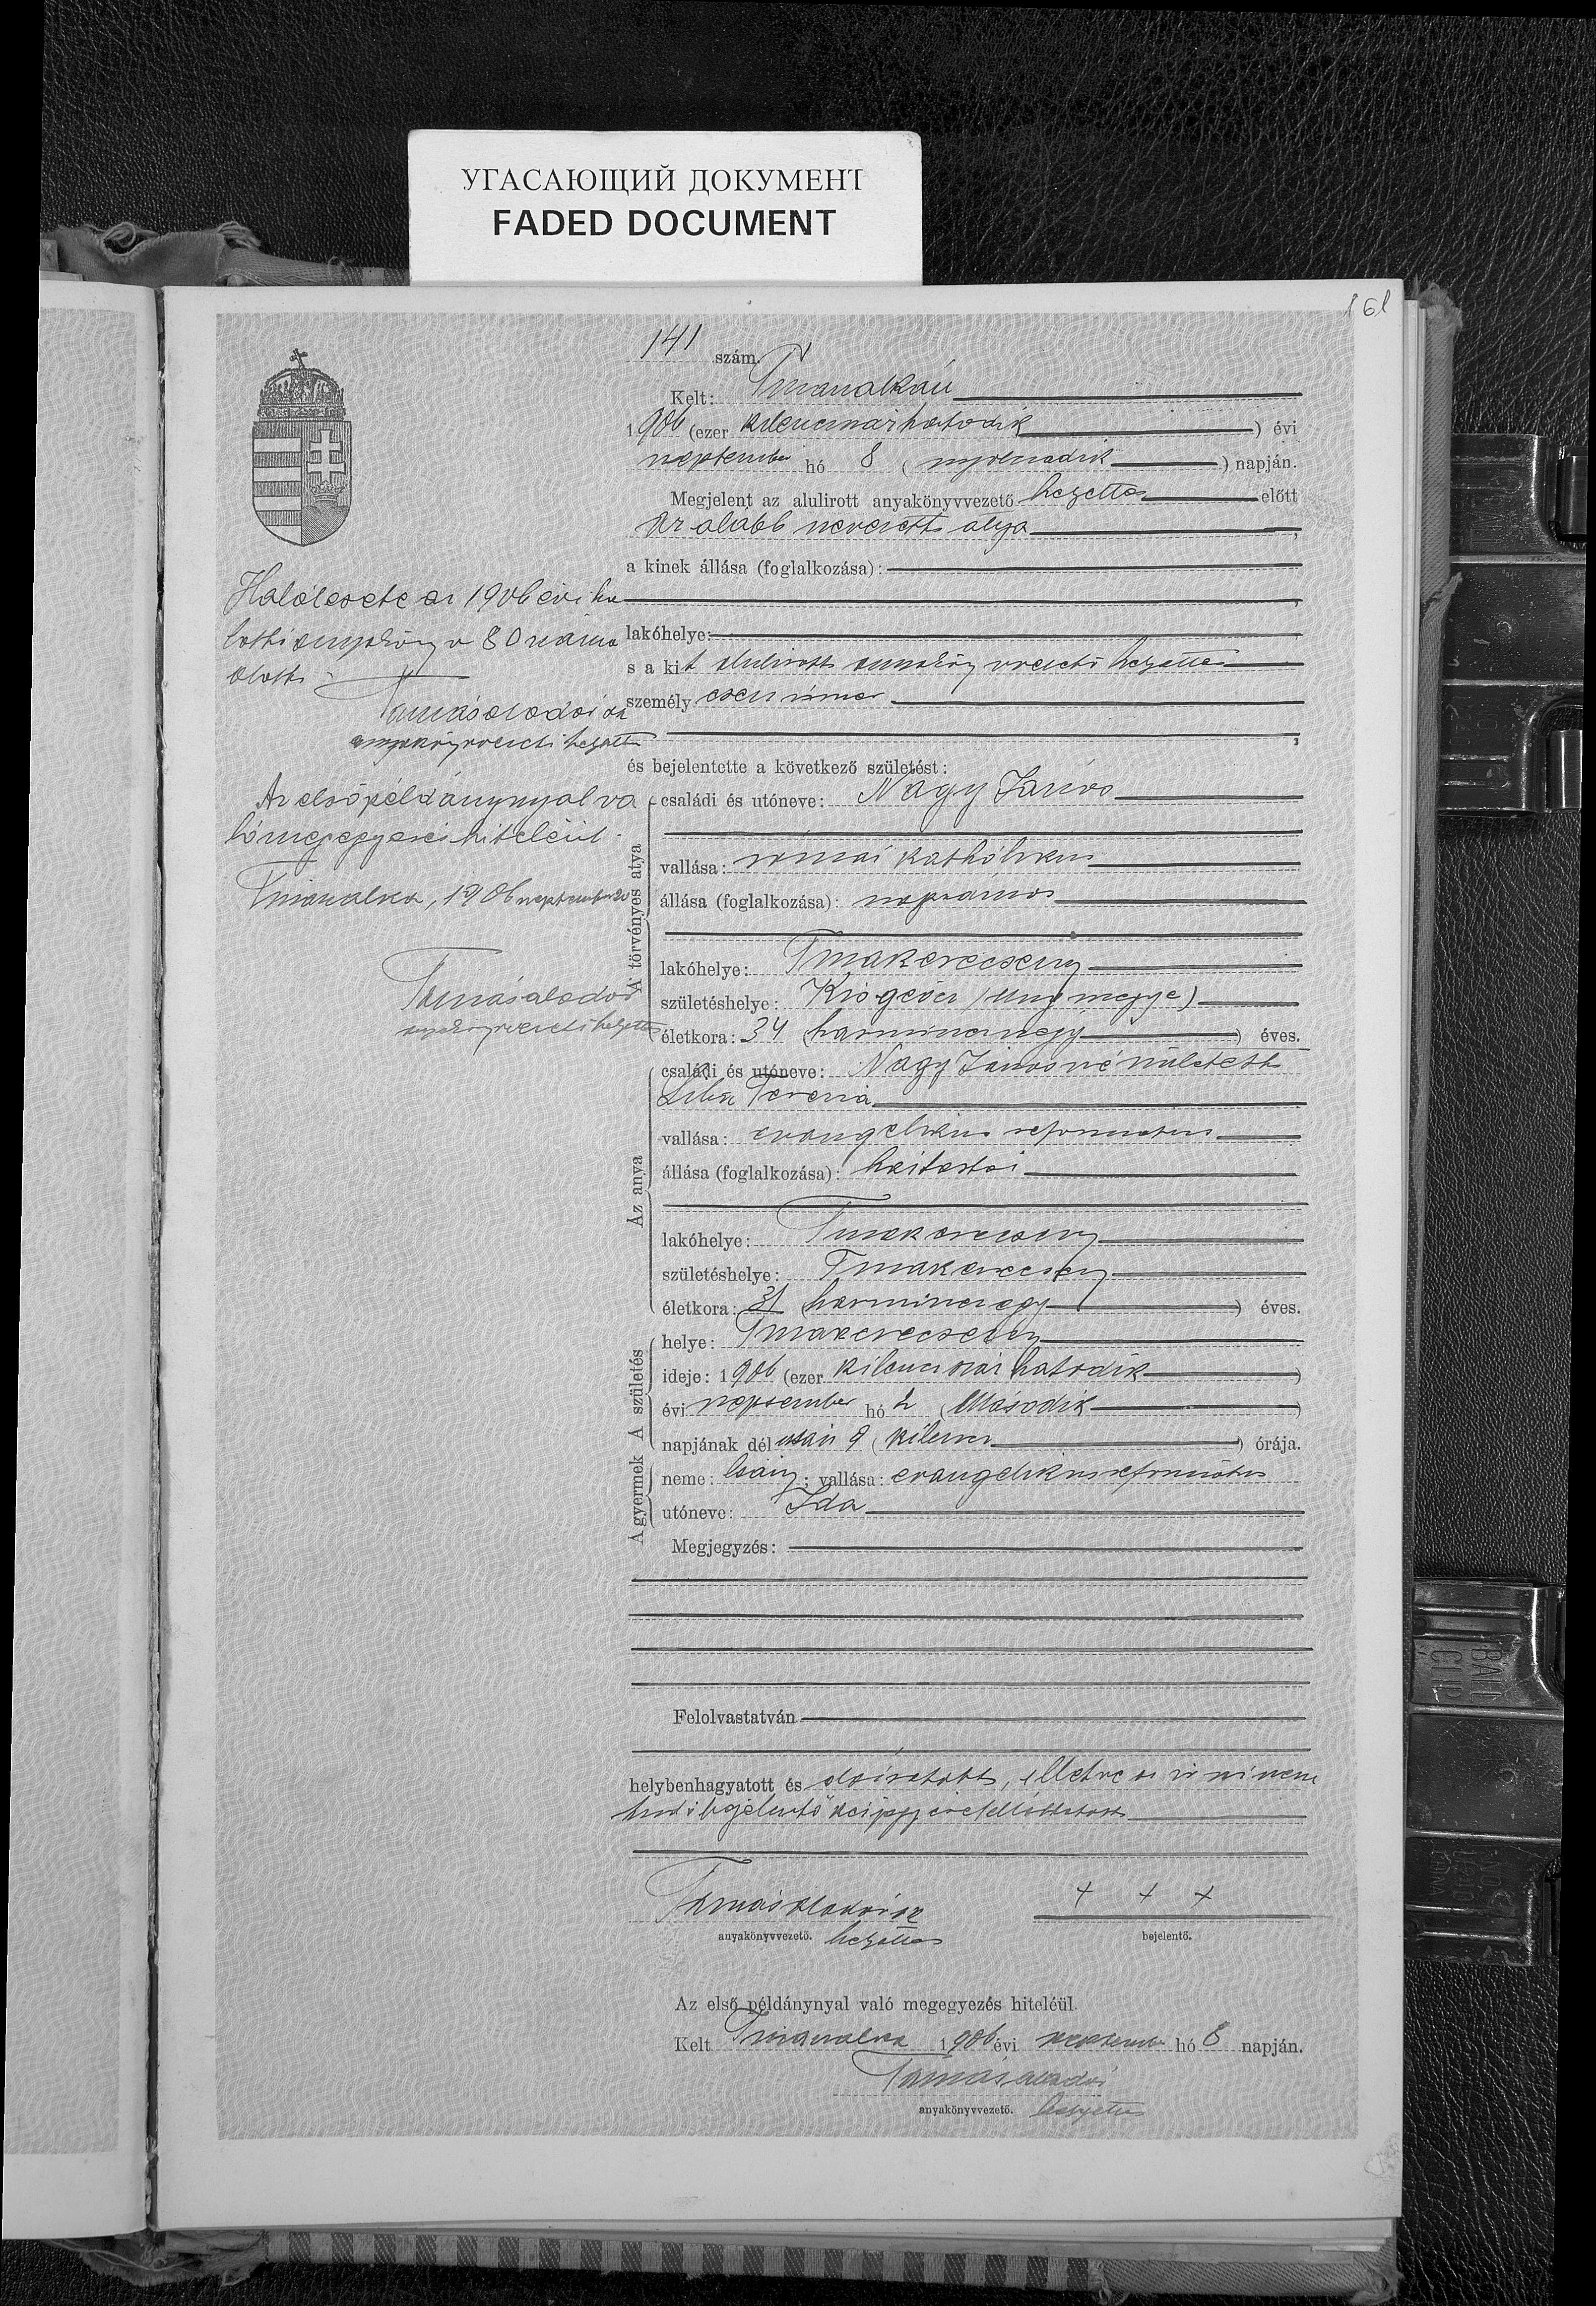 УГАСАЮЩИЙ ДОКУМЕНТ
FADED DOCUMENT
161
141 szám.
Kelt: Tiszasalkán
1906 (ezer kilenczszázhatodik) évi
szeptember hó 8 (nyolczadik) napján.
Megjelent az alulirott anyakönyvvezető helyettes előtt
az alább nevezett atya,
a kinek állása (foglalkozása):
lakóhelye:
s a kit alulirott anyakönyvvezető helyettes
személyesen ismer
és bejelentette a következő születést:
Halálesete az 1906 évi ha
lotti anyakönyv 80 száma
alatt.
Tamás Aladár sk
anyakönyvvezető helyettes
Az első példánynyal va
ló megegyezés hiteléül.
1906 szeptember
Tamás Aladár
anyakönyvvezető helyettes
A törvényes atya
családi és utóneve: Nagy János
vallása: római katholikus
állása (foglalkozása): napszámos
lakóhelye: Tiszakerecseny
születéshelye: Kisgejőcz (Ung megye)
életkora: 34 (harmincznégy) éves.
Az anya
családi és utóneve: Nagy Jánosné született
Terézia
vallása: evangelikus reformatus
állása (foglalkozása): háztartási
lakóhelye: Tiszakerecseny
születéshelye: Tiszakerecseny
életkora: 31 (harminczegy) éves.
A születés
helye: Tiszakerecseny
ideje: 1906 (ezer kilenczszázhatodik)
évi szeptember hó 2 (második)
napjának délután 9 (kilencz) órája.
A gyermek
neme: leány; vallása: evangelikus református
utóneve: Ida
Megjegyzés:
Felolvastatván
helybenhagyatott és aláiratott, illetve az irni nem
tudó bejelentő kézjegyével elláttatott
Tamás Aladár sk + + +
anyakönyvvezető. helyettes bejelentő.
Az első példánynyal való megegyezés hiteléül.
Kelt 1906 évi szeptember hó 8 napján.
Tamás Aladár
anyakönyvvezető. helyettes